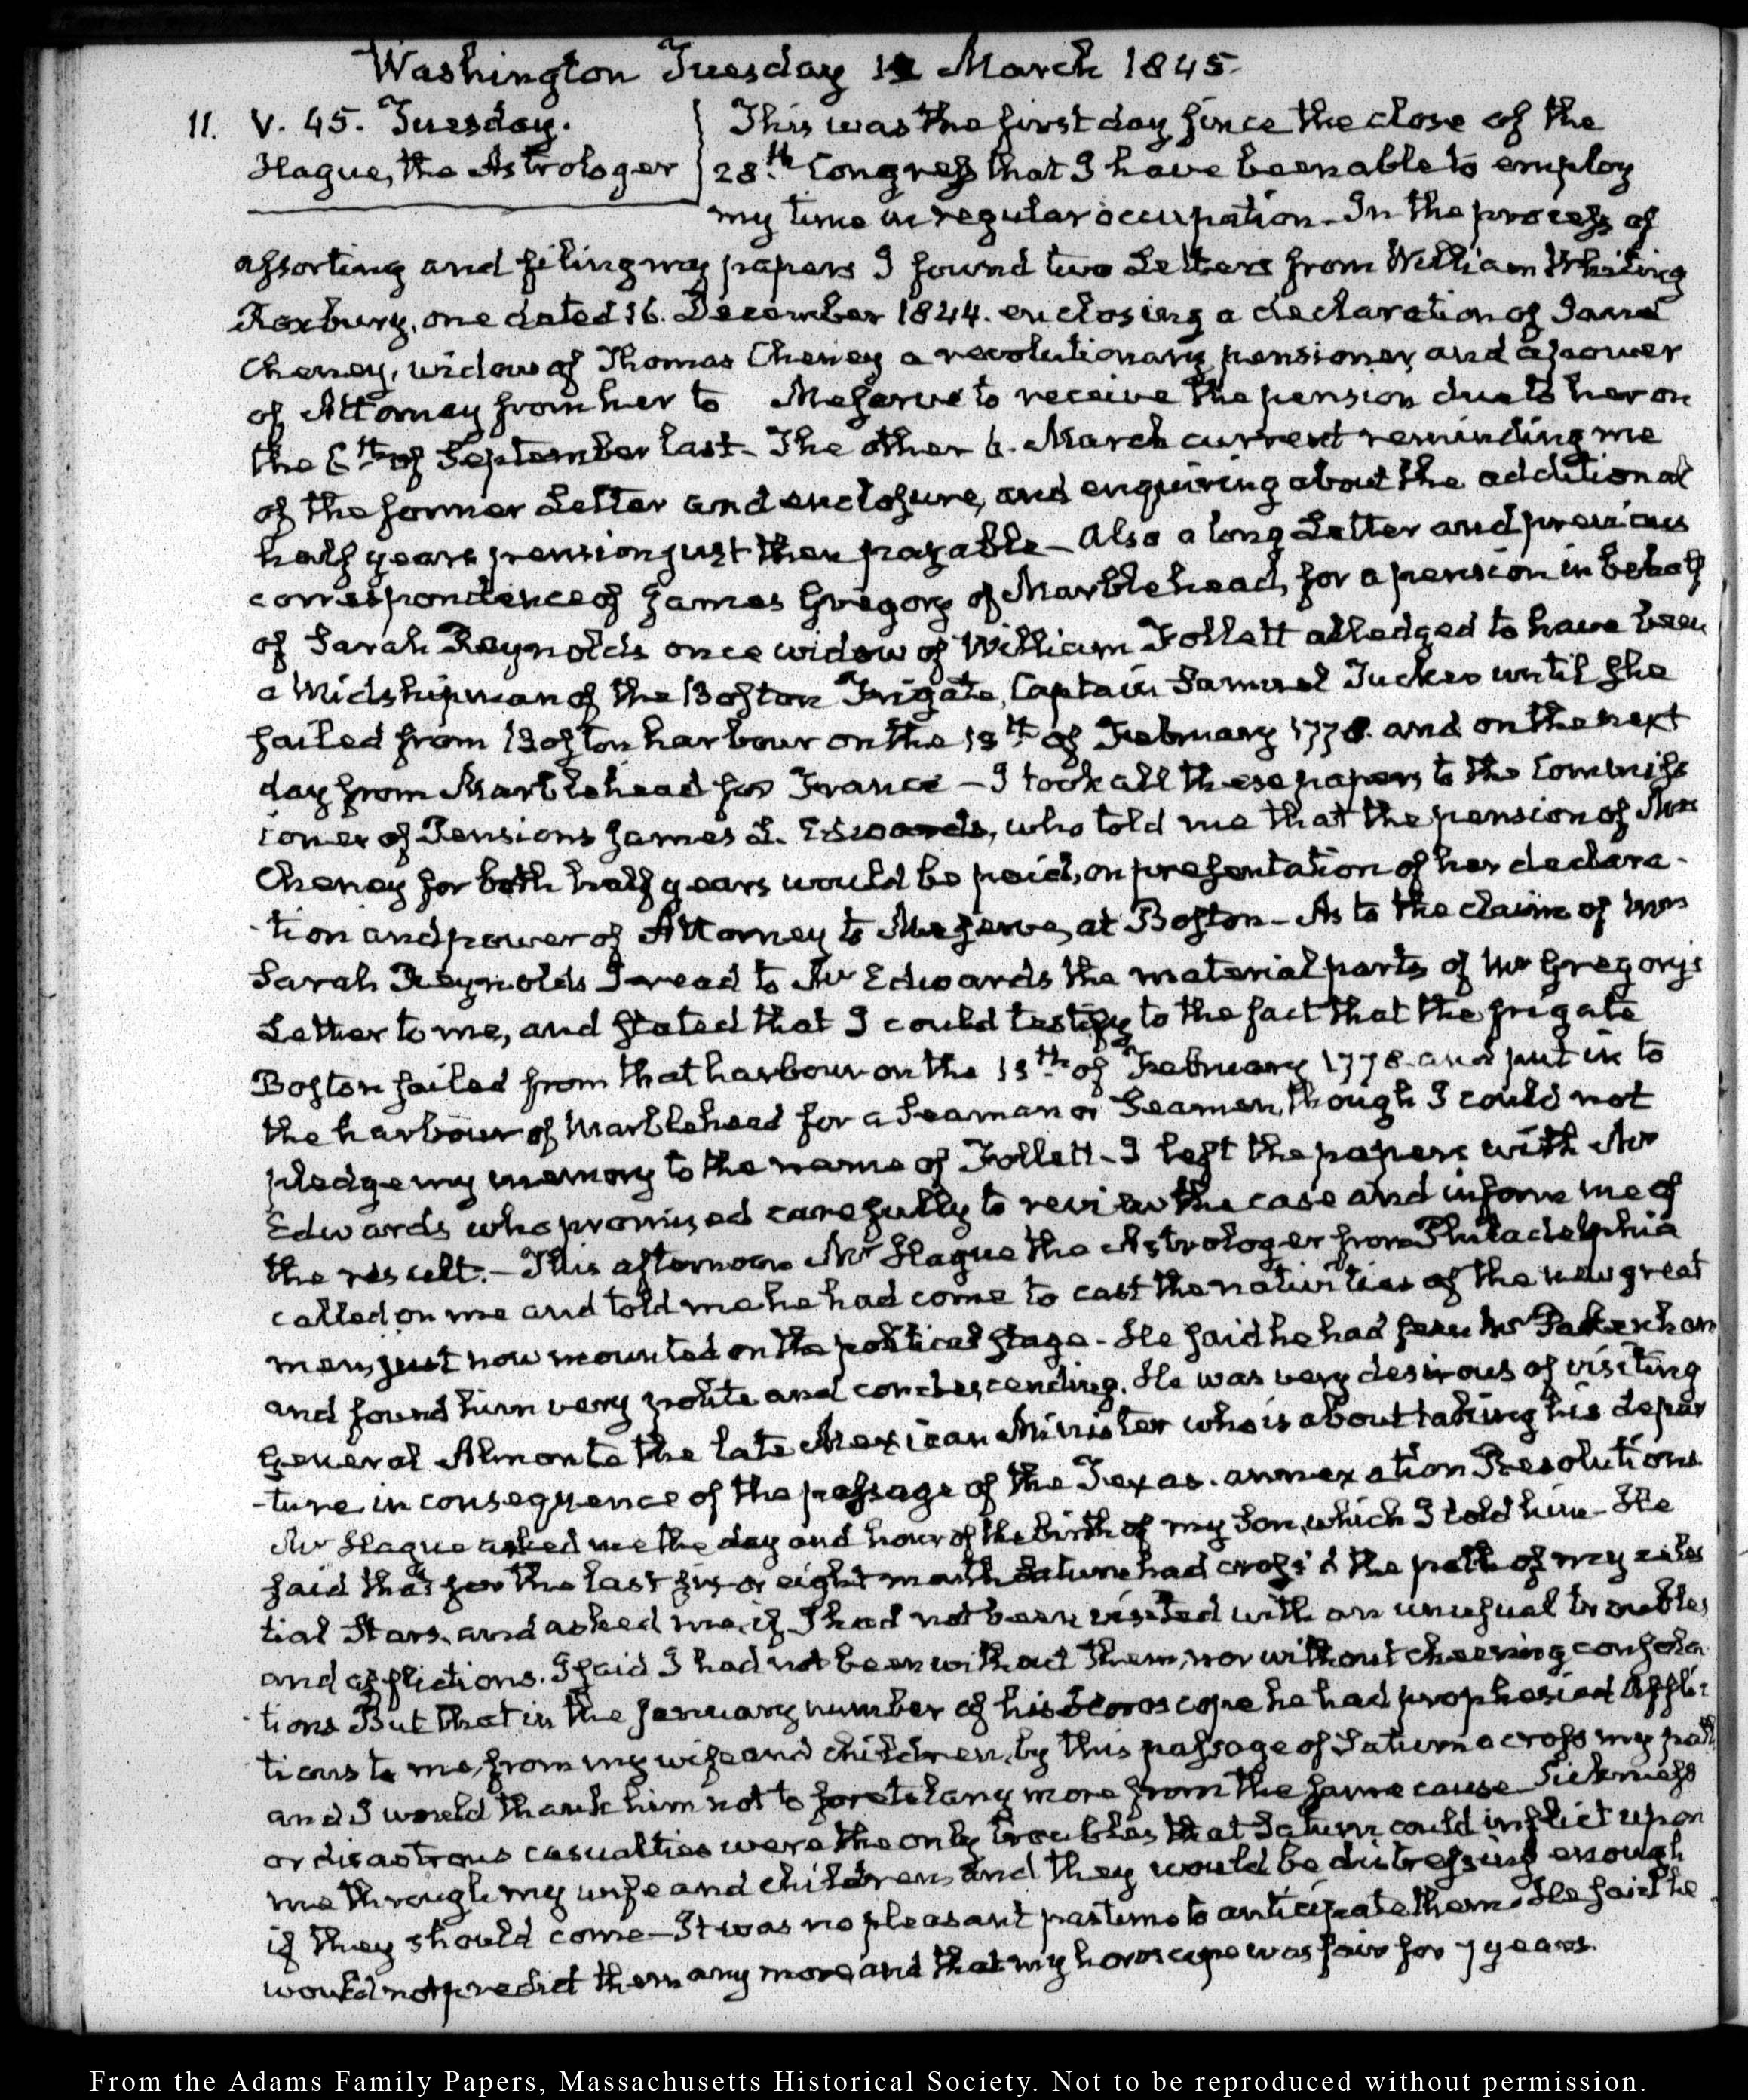 Washington Tuesday 11 March 1845.
11. V. 45. Tuesday.
Hague, the Astrologer
This was the first day since the close of the
28.th Congress that I have been able to employ
my time in regular occupation_ In the process of
assorting and filing my papers I found two Letters from William Whiting
Roxbury, one dated 16. December 1844. enclosing a declaration of
Cheney, widow of Thomas Cheney a revolutionary pensioner, and a power
of Attorney from her to Meserve to receive the pension due to her on
the of September last_ The other 6. March current reminding me
of the former Letter and enclosure, and enquiring about the additional
half years pension just then payable_ Also a long Letter and previous
correspondence of James Gregory of Marblehead, for a pension in behalf
of Sarah Reynolds once widow of William Follett alledged to have been
a Midshipman of the Boston Frigate, Captain Samuel Tucker until she
sailed from Boston harbour on the 13.th of February 1778. and on the next
day from Marblehead for France – I took all these papers to the Commiss
ioner of Pensions James L. Edwards, who told me that the pension of Mrs
Cheney for both half years would be paid, on presentation of her declara-
-tion and power of Attorney to Meserve, at Boston_ As to the claim of Mrs
Sarah Reynolds I read to Mr Edwards the material parts of Mr Gregory's
Letter to me, and stated that I could testify to the fact that the frigate
Boston sailed from that harbour on the 13.th of February 1778. and put in to
the harbour of Marblehead for a Seaman or Seamen, though I could not
pledge my memory to the name of Follett_ I left the papers with Mr
Edwards who promised carefully to review the case and inform me of
the result._ This afternoon Mr Hague the Astrologer from Philadelphia
called on me and told me he had come to cast the nativities of the new great
men, just now mounted on the political stage_ He said he had seen Mr Pakenham
and found him very polite and condescending. He was very desirous of visiting
General Almonte the late Mexican Minister who is about taking his depar
-ture in consequence of the passage of the Texas. annexation Resolutions
Mr Hague asked me the day and hour of the birth of my Son, which I told him_ He
said that for the last six or eight month Saturn had cross'd the path of my celes
tial Stars, and asked me, if I had not been visited with an unusual troubles
and afflictions. I said I had not been without them, nor without cheering consola
-tions But that in the January number of his Horoscope he had prophesied Afflic
tions to me, from my wife and children, by this passage of Saturn across my path
and I would thank him not to foretel any more from the same cause_ Sickness
or disastrous casualties were the only troubles that Saturn could inflict upon
me through my wife and children, and they would be distressing enough
if they should come–It was no pleasant pastime to anticipate them. He said he
would not predict them any more, and that my horoscope was fair for 7 years.
From the Adams Family Papers, Massachusetts Historical Society. Not to be reproduced without permission.